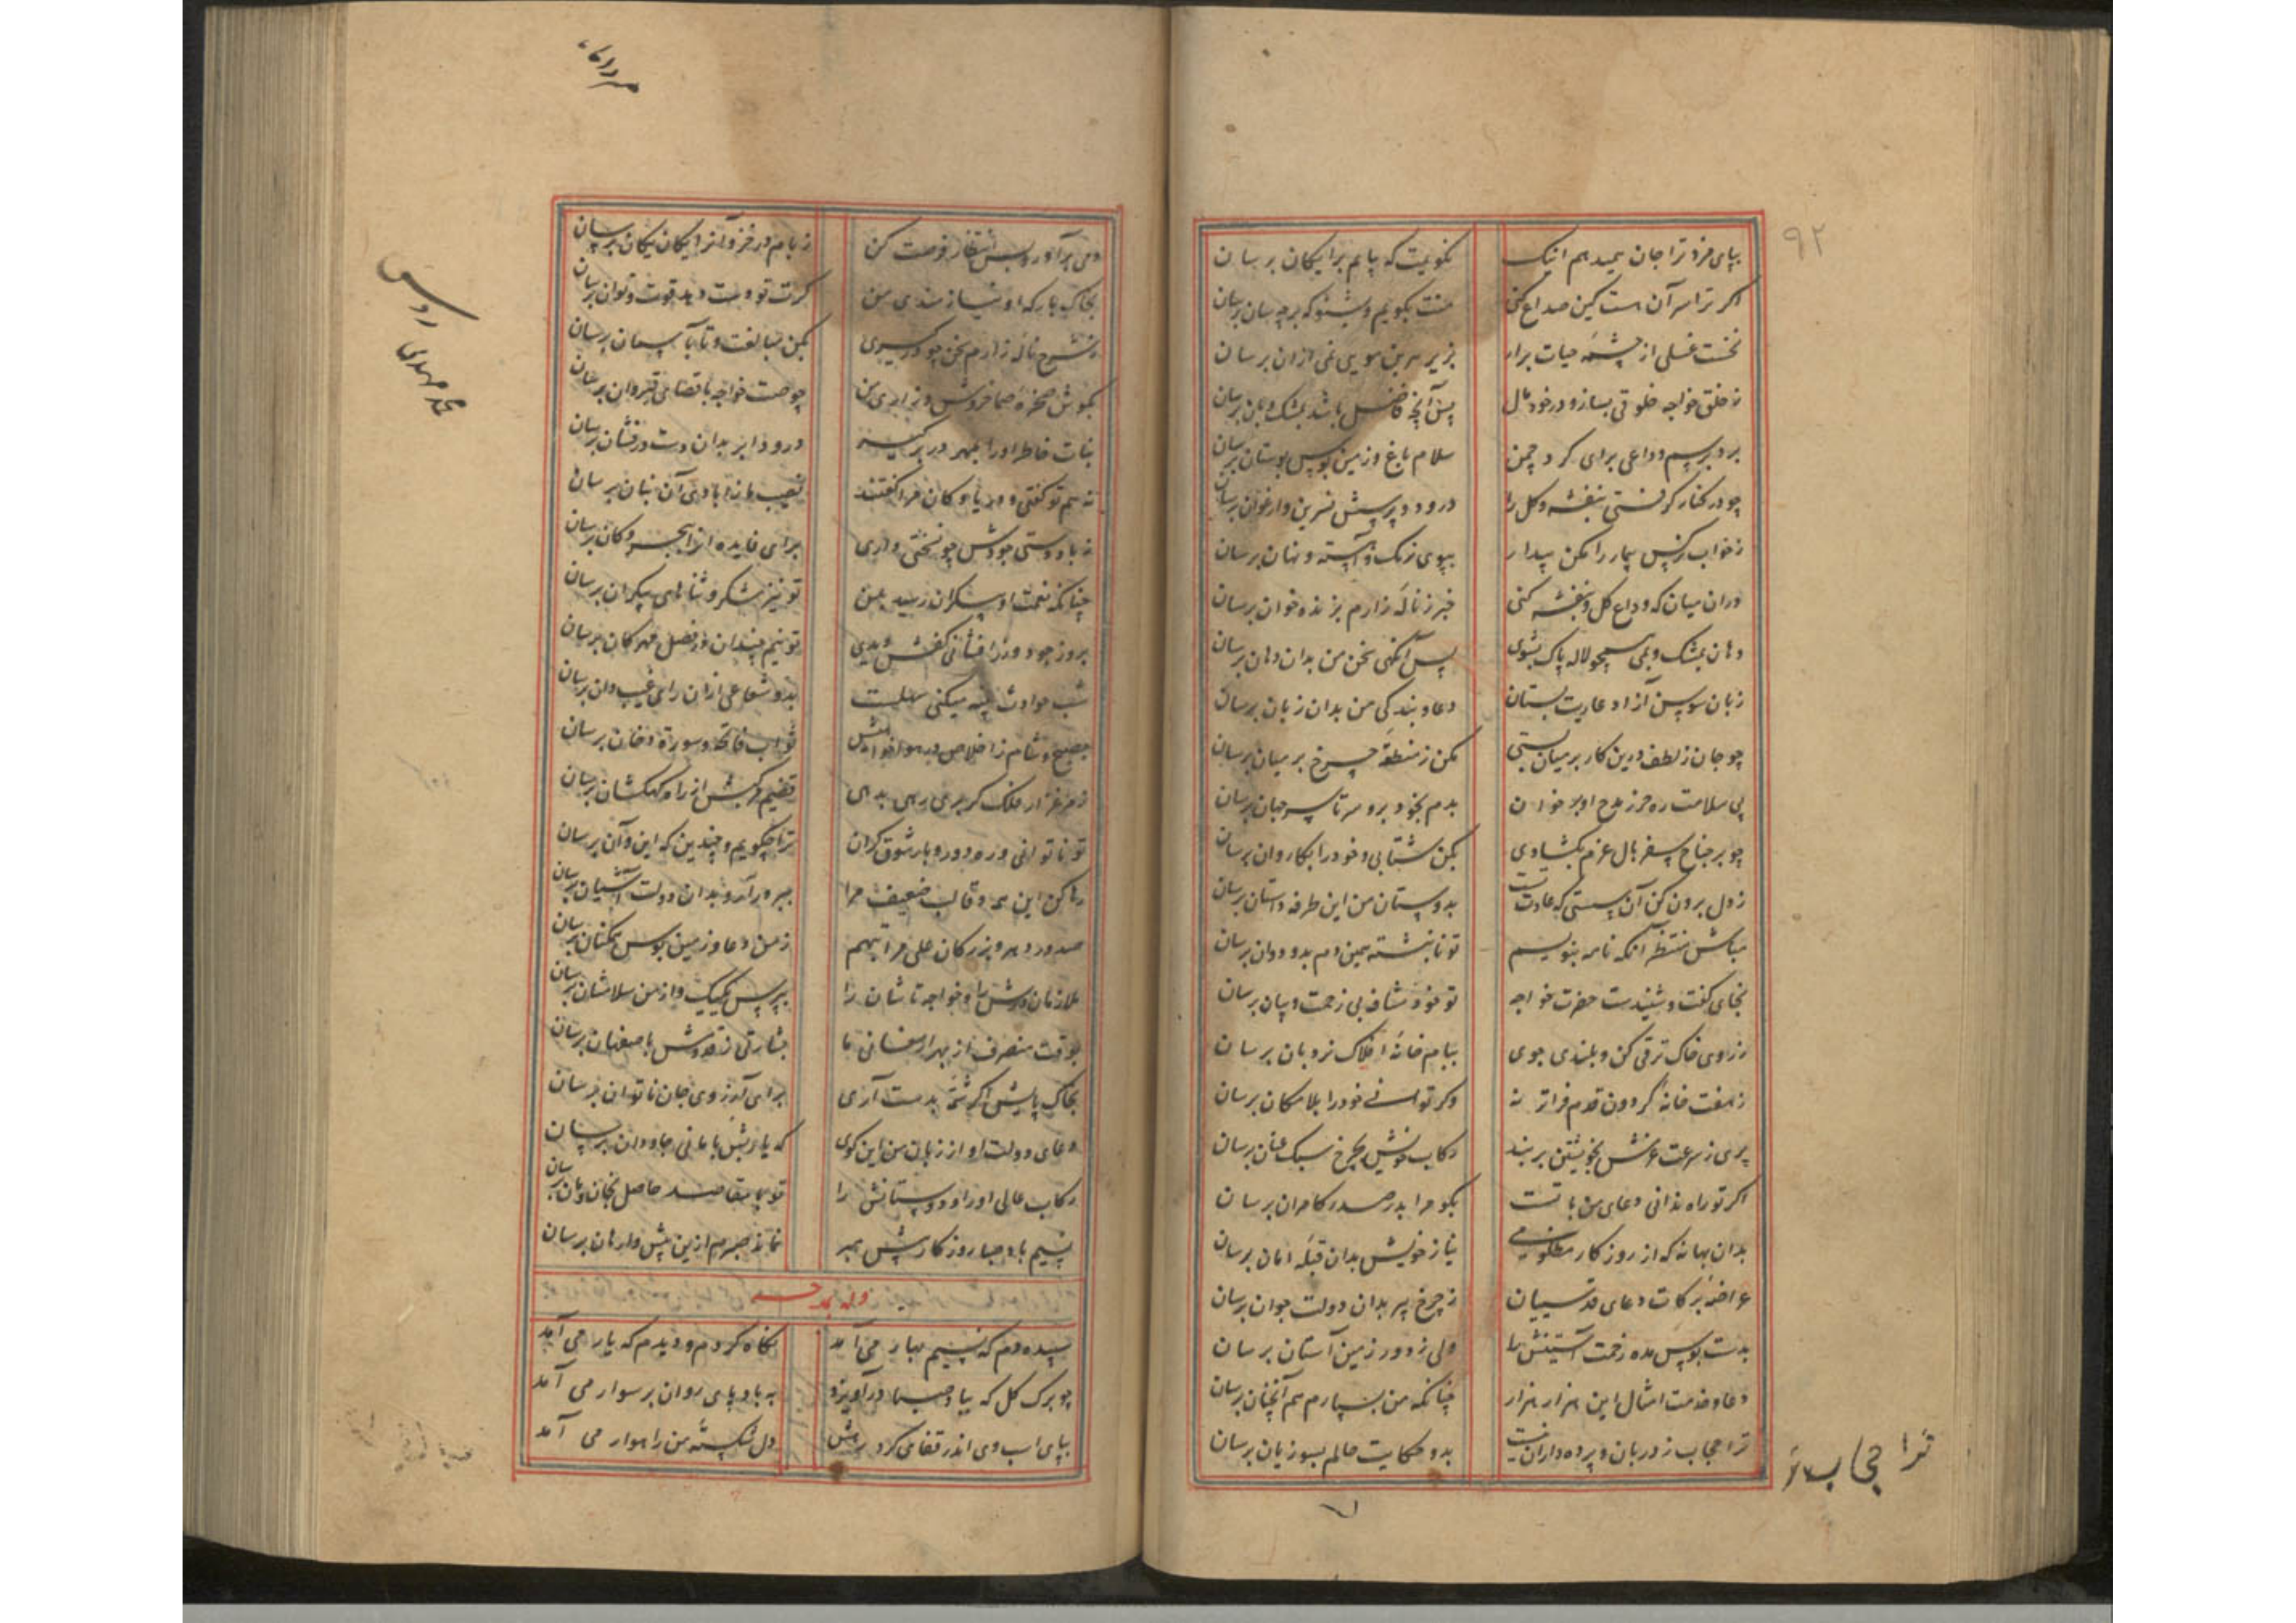 ۹۲
بپای مزد ترا جان میدهم اینک نکویمت که پیامم برایکان برسان
اکر ترا سر آن هست کین صداع کنی منت بکویم و بشنو که بر چه سان برسان
نخست غسلی از چشمه حیات برار بزیر هر بن مویی نمی ازان برسان
ز خلق خواجه خلوقی بساز و در خود مال پس آنچه فاضل باشد بمشک و بان برسان
برو برسم وداعی برای کرد چمن سلام باغ و زمین بوس بوستان برسان
چو در کنار کرفتی بنفشه و کل را درود و پرسش نسرین و ارغوان برسان
ز خواب نرکس بیمار را مکن بیدار ببوی زمک و آهسته و نهان برسان
دران میان که وداع کل و بنفشه کنی خبر ز ناله زارم بزند خوان برسان
دهان بمشک و بمی همچو لاله پاک بشوی پس آنکهی سخن من بدان دهان برسان
زبان سوسن آزاد عاریت بستان دعا و بندکی من بدان زبان برسان
چو جان ز لطف درین کار بر میان بستی مکن ز منطقه چرخ بر میان برسان
پی سلامت ره حرز مدح او بر خوان بدم بخود برو سر تا سر جهان برسان
چو بر جناح سفر بال عزم بکشادی بکن شتابی و خود را بکاروان برسان
ز دل برون کن آن سستی که عادت تست بدوستان من این طرفه داستان برسان
مباش منتظر آنکه نامه بنویسم تو نانبشته همین دم بدو دوان برسان
بجای کفت و شنیدست حضرت خواجه تو خود مشافه بی زحمت و بیان برسان
ز روی خاک ترقی کن و بلندی جوی ببام خانه افلاک نردبان برسان
ز هفت خانه کردون قدم فراتر نه وکر توانی خود را بلامکان برسان
پری ز سرعت عزمش بخویشتن بر بند رکاب خویش بچرخ سبک عنان برسان
اکر تو راه ندانی دعای من با تست بکو مرا بدر صدر کامران برسان
بدان بهانه که از روزکار مظلومی نیاز خویش بدان قبله امان برسان
عراضه برکات دعای قدسیان ز چرخ پیر بدان دولت جوان برسان
بدست بوس مده زحمت آستینش را ولی ز دور زمین آستان برسان
دعا و خدمت امثال این هزار هزار چنانکه من بسپارم هم آنچنان برسان
ترا حجاب ز دربان و پرده داران نیست بدو حکایت حالم بسوزیان برسان
ترا حجاب ز
دمی برآور و بس انتظار فرصت کن ز بام در خز و آنرا یکان یکان برسان
بخاک بارکه او نیازمندی من کرت تو دست دهد قوت و توان برسان
بشرح ناله زارم سخن چو درکیری بکن مبالغت و تا بآسمان برسان
بکوش صخره صما خروش و زاری من چو صیت خواجه باقصای قیروان برسان
بنات خاطر او را بمهر در بر کیر درود ابر بدان دست درفشان برسان
نه هم تو کفتی و دریا و کان مرا کفتند نصیب ما ز ایادی آن بنان برسان
ز باد دستی جودش چو نسختی داری برای فایده آنرا ببحر و کان برسان
چنانکه نعمت او بیکران رسید بمن تو نیز شکر و ثناهای بیکران برسان
بروز جود ورز افشانی کفش دیدی تو نیم چندان در فصل مهرکان برسان
شب حوادث پنبه میکنی سهلست بدو شعاعی ازان رای غیب دان برسان
بصبح و شام ز اخلاص در هوا خواهیش ثواب فاتحه و سورة دخان برسان
ز مرغزار فلک کر بری رهی بدهی قضیم مرکبش از راه کهکشان برسان
تو ناتوانی و ره دور و بار شوق کران ترا چکویم چندین که این و آن برسان
رها کن این همه و قالب ضعیف مرا ببر ور آر و بدان دولت آشیان برسان
صدور دهر و بزرکان علی مراتبهم ز من دعا و زمین بوس همکنان برسان
ملازمان درش را و خواجه تاشان را بپرس یک یک و از من سلامشان برسان
بوقت منصرف از بهر ارمغانی ما بشارتی ز قدومش باصفهان برسان
بخاک پایش اکر شمه بدست آری برای آرزوی جان ناتوان برسان
دعای دولت او از زبان من این کوی که یا ربش بامانی جاودان برسان
رکاب عالی او را و دوستانش را تو با مقاصد حاصل بخان و مان برسان
نسیم باد صبا روزکار پیش مبر نماند صبرم ازین پیش وارهان برسان
وله یمدحه
سپیده دم که نسیم بهار می آمد نکاه کردم و دیدم که یار می آمد
چو برک کل که بباد صبا درآویزد به باد پای روان بر سوار می آمد
بپای اسب وی اندر قفا می کرد رهش دل شکسته من راهوار می آمد
محمد مهدی